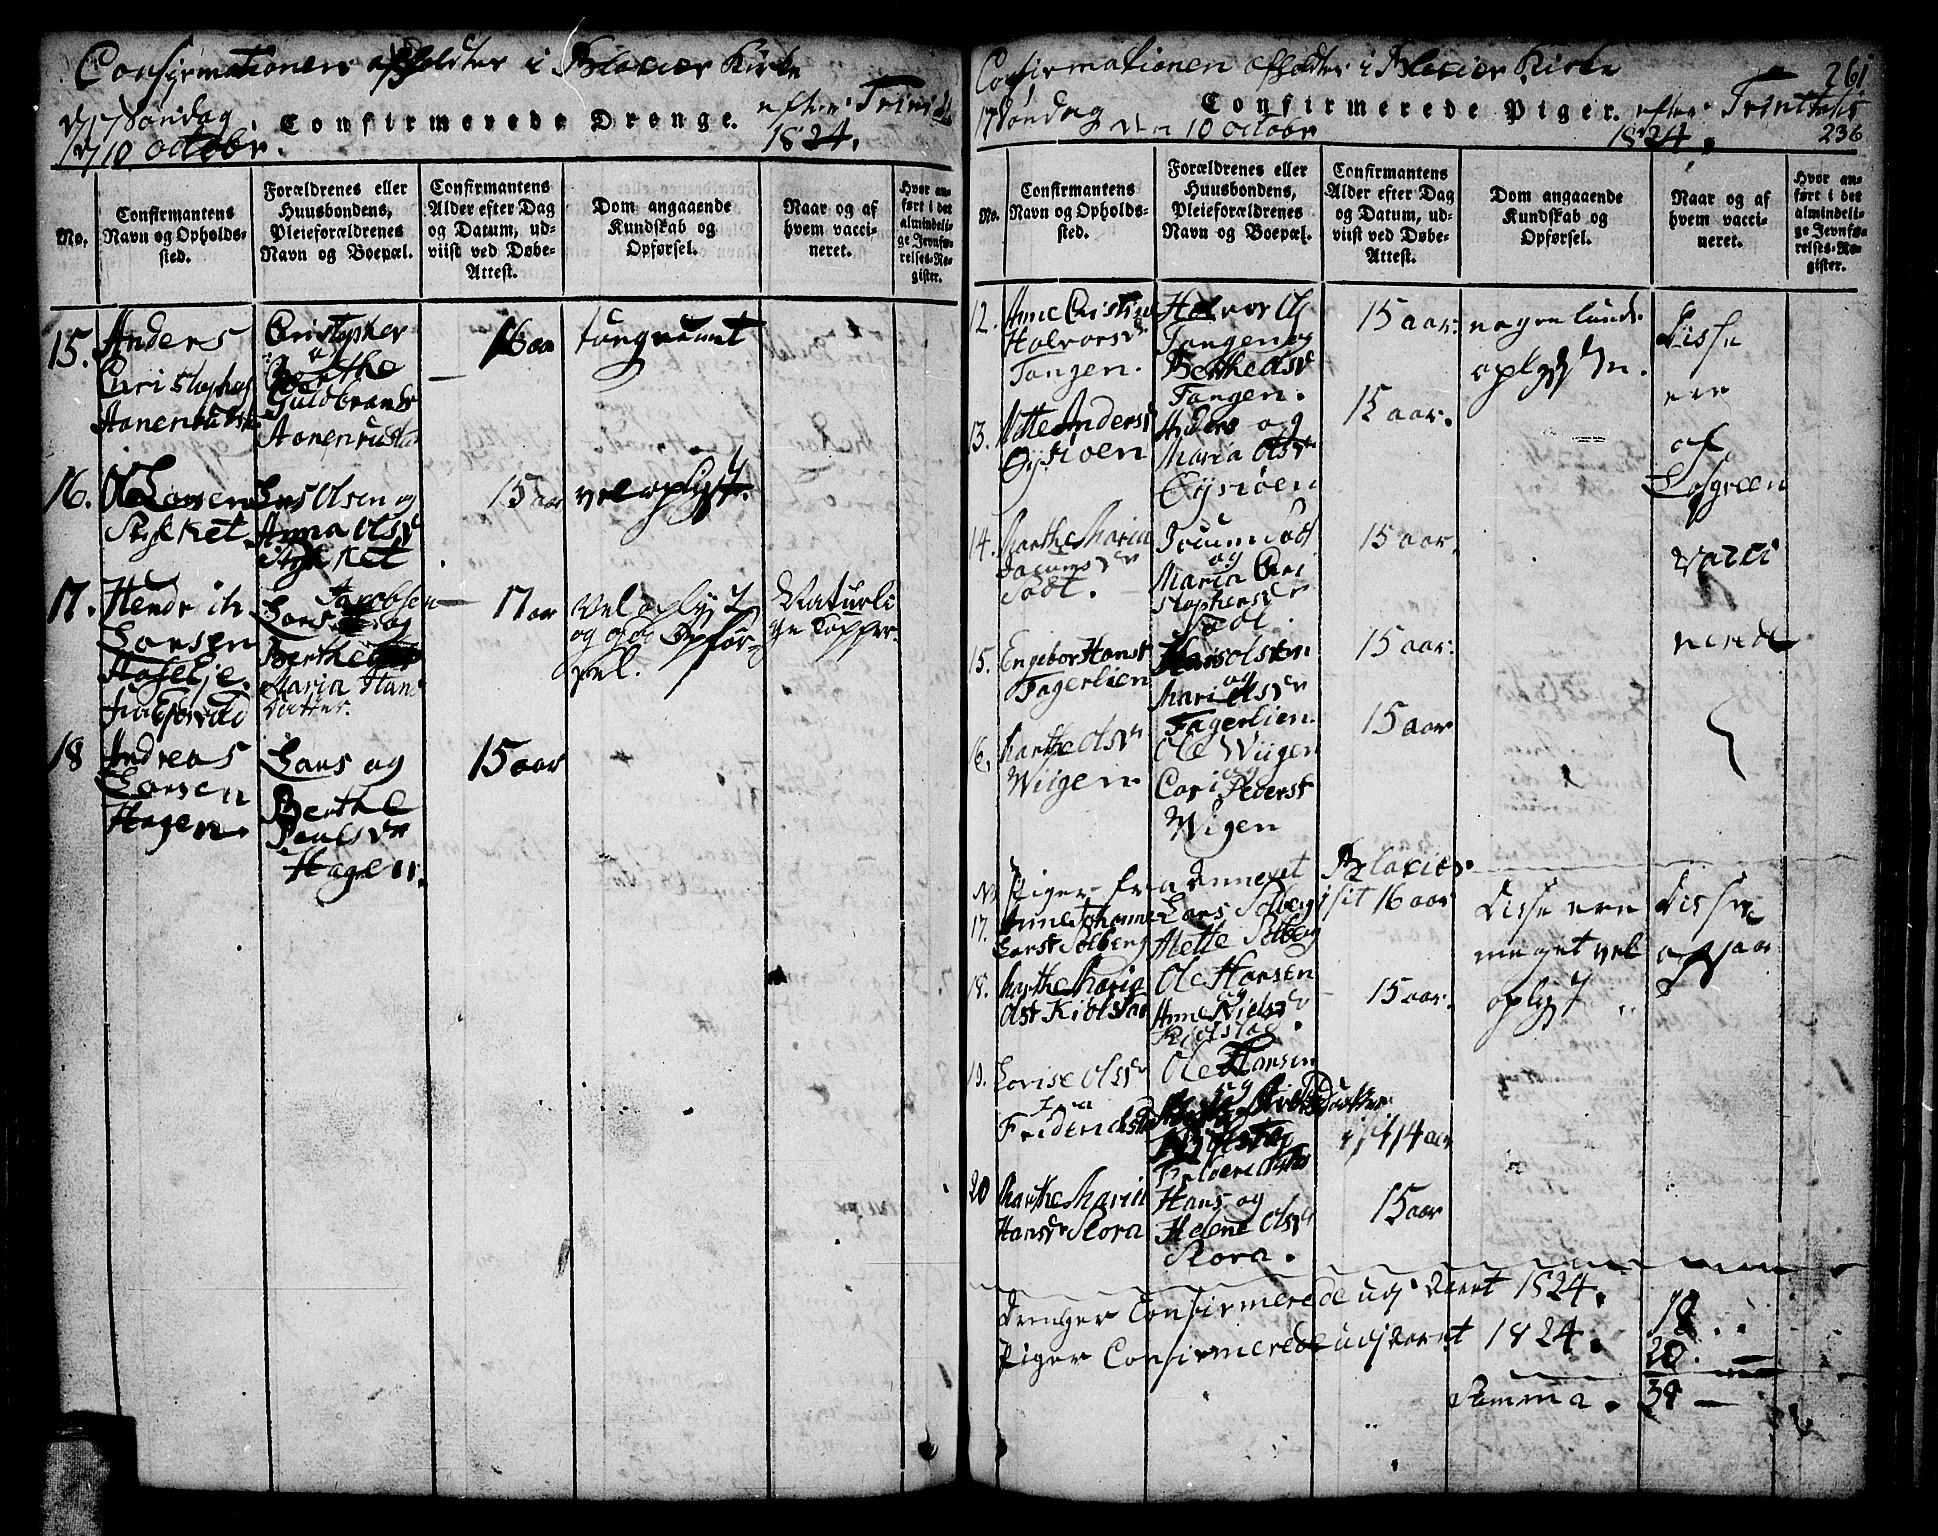 Confirmationen afholdter i Blacier Kirke
17 Søndag efter Trinit
10 octobr. 1824.
Confirmerede Drenge.
No.
Confirmantens Navn og Opholdssted.
Forældrenes eller Huusbondens, Pleieforældrenes Navn og Boepæl.
Confirmantens Alder efter Dag og Datum, udviist ved Døbe-Attest.
Dom angaaende Kundskab og Opførsel.
Naar og af hvem vaccineret.
Hvor anført i det almindelige Jevnførelses-Register.
15.
Anders
Christophers
Aanerud
Cristopher
og
Berthe
Guldbrands
Aanerud
16 aar
16.
Ole Larsen
Stykket
Lars Olsen og
Anna Olsdr
Stykket
15 aar
vel oplyst.
17.
Hendrik
Larsen
Lars Jacobsen
og
Berthe
Maria Hans
datter.
17 aar
vel oplyst
og god Opfør-
sel.
Naturli
ge Kopper.
18
Andreas
Larsen
Hagen.
Lars og
Berthe
Paulsdr
Hagen.
15 aar
Confirmationen afholdter i Blacier Kirke
261
17 Søndag efter Trinitatis
den 10 octobr 1824.
236
Confirmerede Piger.
No.
Confirmantens Navn og Opholdssted.
Forældrenes eller Huusbondens, Pleieforældrenes Navn og Boepæl.
Confirmantens Alder efter Dag og Datum, udviist ved Døbe-Attest.
Dom angaaende Kundskab og Opførsel.
Naar og af hvem vaccineret.
Hvor anført i det almindelige Jevnførelses-Register.
12.
Anne Cristine
Halvorsdr
Tangen.
Halvor Ols
Tangen og
Berthe Olsdr
Tangen.
15 aar.
nogenlunde
oplyste.
Disse
ere
af
Løfgreen
vacci
nerede
13.
Mette Andersd
Øysiøen
Anders og
Maria Olsdr
Øysiøen
15 aar.
14.
Marthe Maria
Jocumsdr
Jocum
og
Maria Cri
stophersdr
15 aar.
15.
Engebor Hansd
Fagerlien
Hans Olsen
og
Mari Olsdr
Fagerlien.
15 aar.
16.
Marthe Olsdr
Wiigen
Ole Wiigen
og
Cari Pedersd
Wigen
15 aar
NB Piger fra Annexet Blacier
17.
Anne Johanne
Larsd Solberg
Lars Solberg
Mette Solberg
16 aar
Disse ere
meget vel
oplyst
Disse
18.
Marthe Maria
Olsd Kiolstad
Ole Hansen
og
Anne Nielsdr
Kiolstad.
15 aar.
19.
Lovise Olsdr
Ole Hansen
og
14 aar
20
Marthe Maria
Hansdr Rora
Hans og
Helene Olsdr
Rora.
15 aar
Drenger Confirmerede udj Aaret 1824. 18
Piger Confirmerede udj Aaret 1824. 20.
Summa. 38